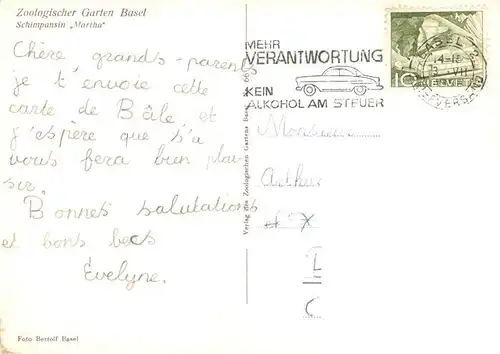 Zoologischer Garten Basel
Schimpansin „Martha"
Chère grands-parents
je t'envoie cette
carte de Bâle et
j'espère que s'a
vous fera bien plai-
sir.
Bonnes salutations
et bons becs
Evelyne.
Foto Bertolf Basel
Verlag des Zoologischen Gartens Basel
MEHR
VERANTWORTUNG
KEIN
ALKOHOL AM STEUER
10
HELVETIA
BASEL 2
BRIEFVERSAND
Monsieur
Arthur
et